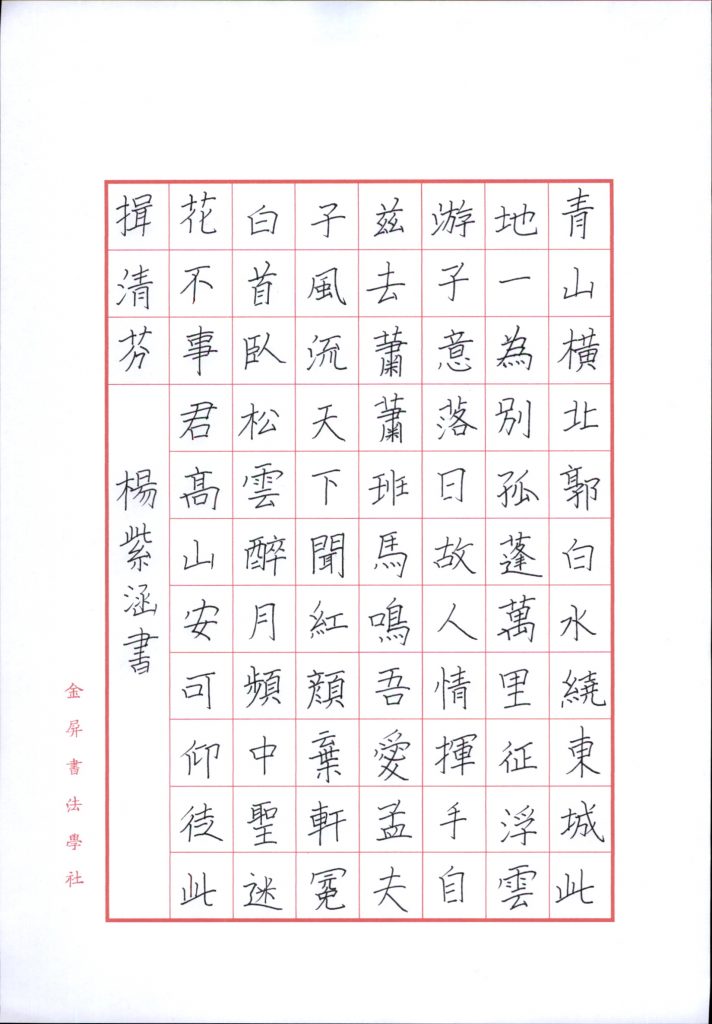 青山橫北郭白水繞東城此
地一為別孤蓬萬里征浮雲
游子意落日故人情揮手自
茲去蕭蕭班馬鳴吾愛孟夫
子風流天下聞紅顏棄軒冕
白首臥松雲醉月頻中聖迷
花不事君高山安可仰徒此
揖清芬
楊紫涵書
金屏書法學社